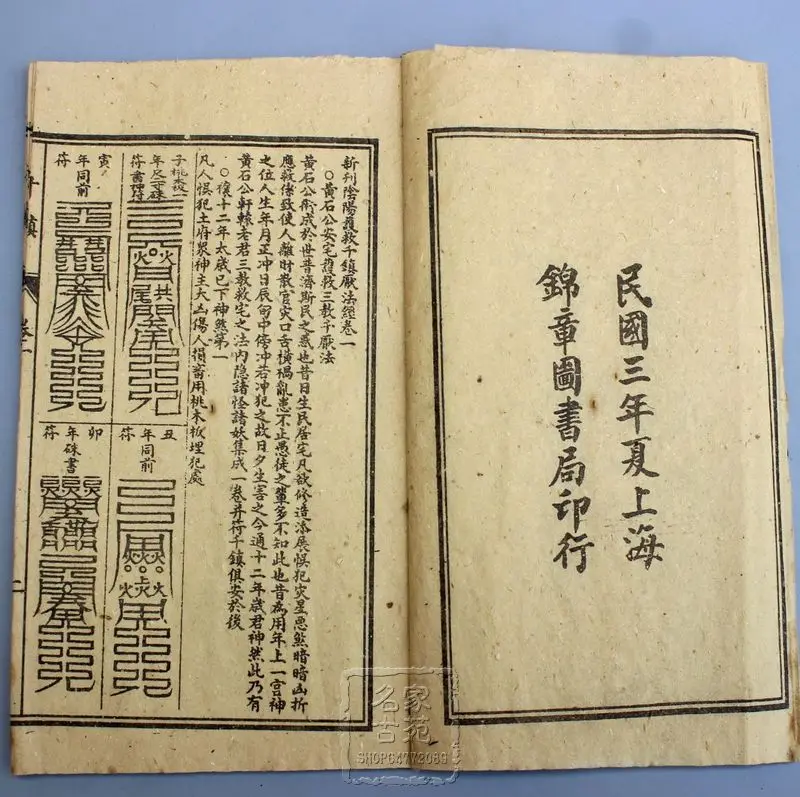 民國三年夏上海
錦章圖書局印行
新刊陰陽護救千鎮厭法經卷一
○黃石公安宅護救三教千厭法
黃石公術成於世普濟斯民之惑也昔日生民居宅凡欲修造添展悞犯災星惡煞暗暗凶折
應殺傳致使人離財散官灾口舌橫禍亂患不止愚徒之輩多不知此也昔為用年上一宮神
之位人生年月正冲日辰旬中傍冲若冲犯之故日夕生害之今通十二年歲君神煞此乃有
黃石公軒轅老君三教救宅之法內隐諸怪諸妖集成一卷并符千鎮俱安於後
○禳十二年太歲已下神煞第一
凡人悞犯土府眾神主大凶傷人損畜用桃木板埋犯處
子
年
符
桃木板一
尺二寸硃
書埋符
丑
年同前
符
寅
年同前
符
卯
年硃書
符
鎮
卷一
二
名家
古苑
SHOP64772089